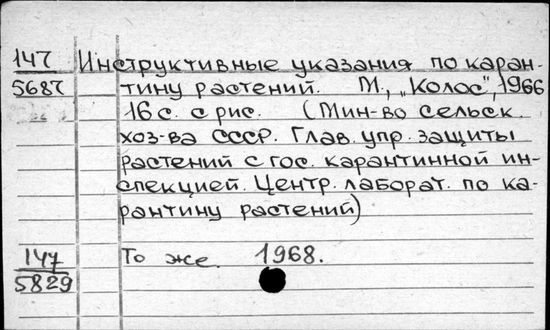 147 Инструктивные указания по каран-
5687 тину растений. М., „Колос", 1966
16 с. с рис. (Мин-во сельск.
хоз-ва СССР. Глав. упр. защиты
растений с гос. карантинной ин-
спекцией. Центр. лаборат. по ка-
рантину растений)
147 То же. 1968.
5829